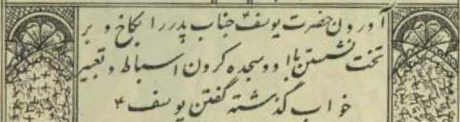 آوردن حضرت یوسف ع جناب پدر را بکاخ و بر
تخت نشستن با او و سجده کردن اسباط و تعبیر
خواب گذشته گفتن یوسف ع